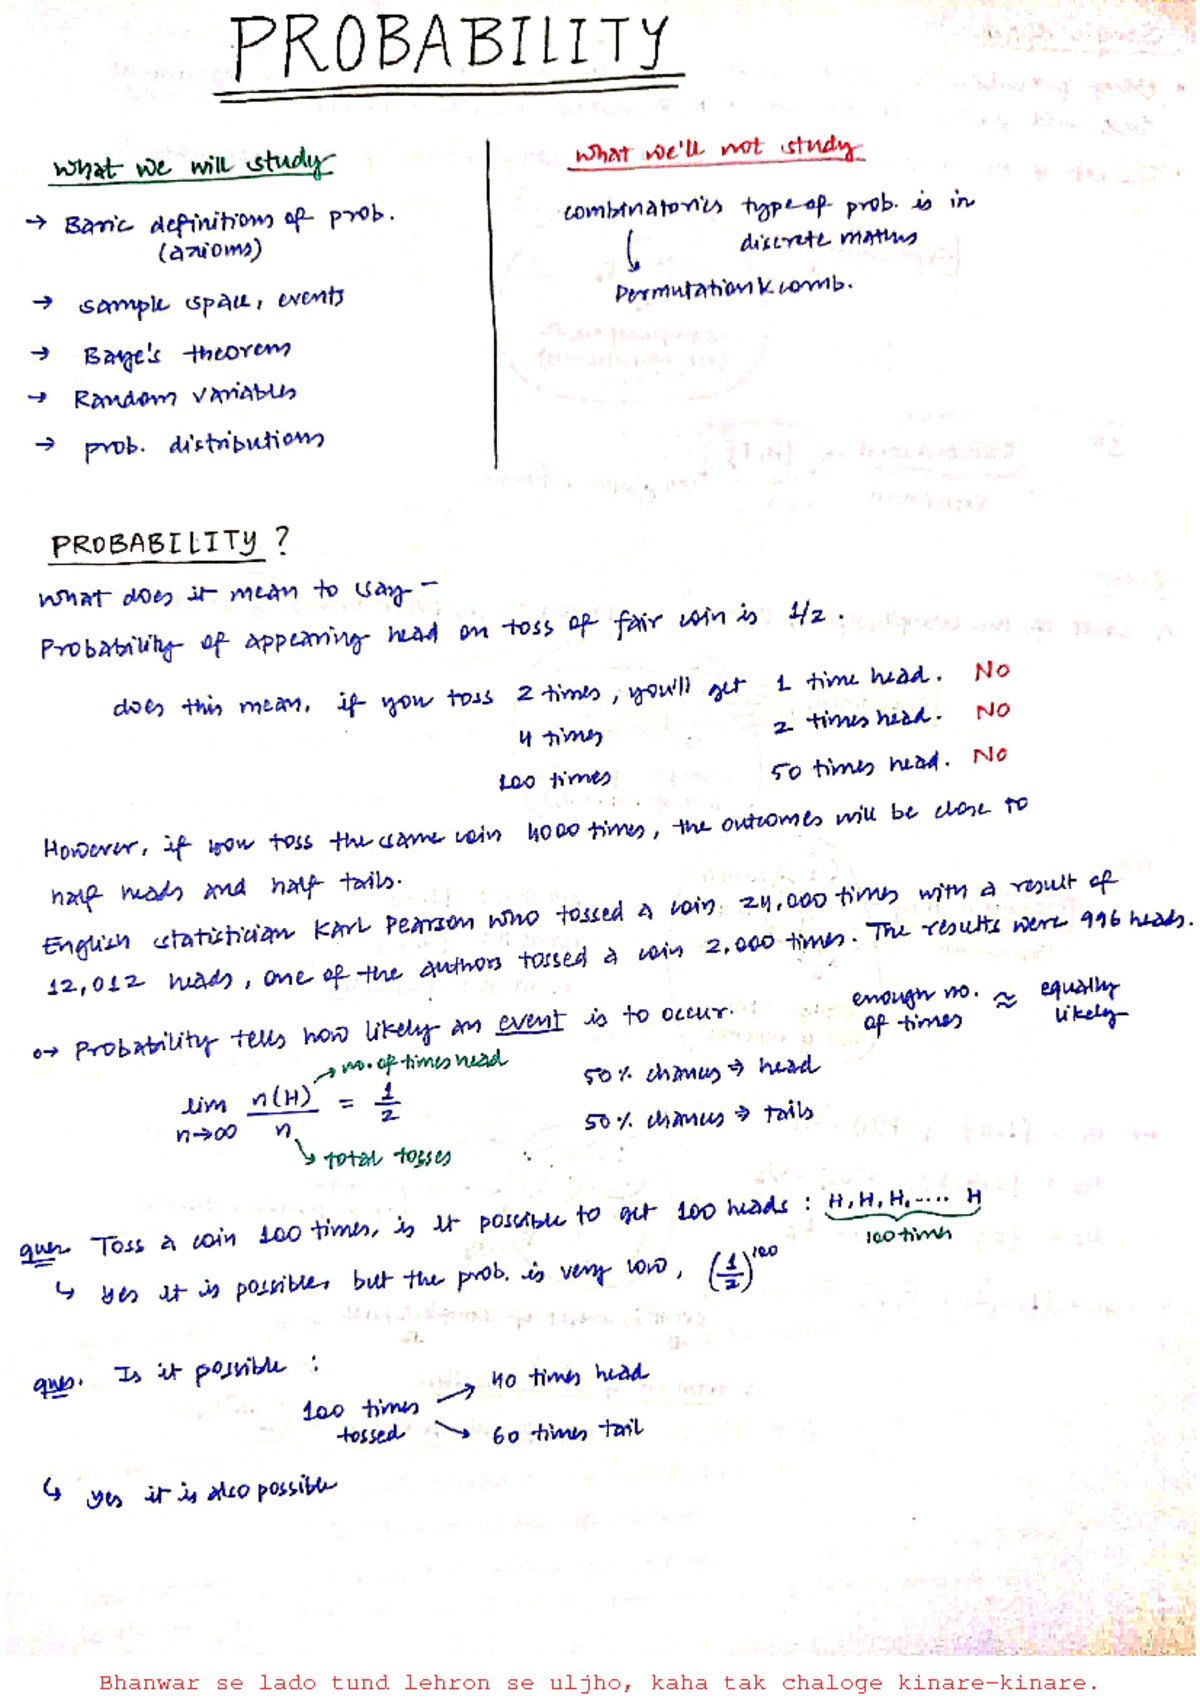 PROBABILITY
what we will study
→ Basic definitions of prob.
(axioms)
→ sample space, events
→ Baye's theorem
→ Random variables
→ prob. distributions
what we'll not study
combinatorics type of prob. is in
discrete maths
↳ Permutation & comb.
PROBABILITY ?
what does it mean to say -
Probability of appearing head on toss of fair coin is 1/2.
does this mean, if you toss 2 times, you'll get 1 time head. No
4 times 2 times head. No
100 times 50 times head. No
However, if you toss the same coin 4000 times, the outcomes will be close to
half heads and half tails.
English statistician Karl Pearson who tossed a coin 24,000 times with a result of
12,012 heads, one of the authors tossed a coin 2,000 times. The results were 996 heads.
→ Probability tells how likely an event is to occur.
enough no. of times ≈ equally likely
lim n→∞ n(H)/n = 1/2
→ no. of times head
→ total tosses
50% chances ⇒ head
50% chances ⇒ tails
ques. Toss a coin 100 times, is it possible to get 100 heads : H, H, H, .... H
100 times
↳ yes it is possible, but the prob. is very low, (1/2)^100
ques. Is it possible :
100 times tossed → 40 times head
→ 60 times tail
↳ yes it is also possible
Bhanwar se lado tund lehron se uljho, kaha tak chaloge kinare-kinare.